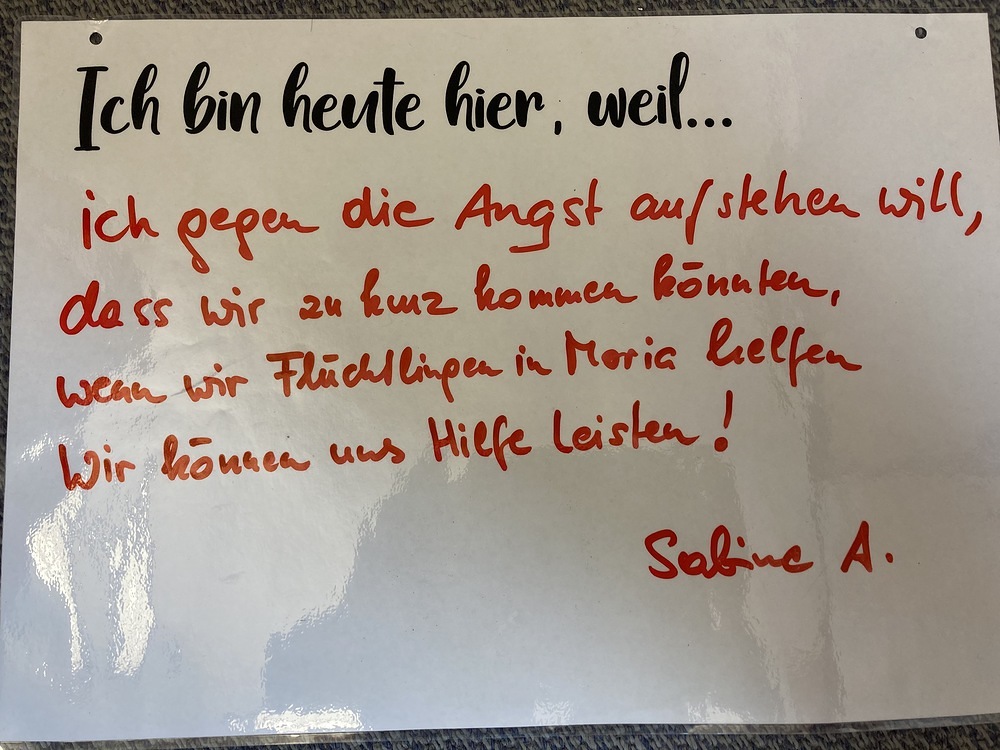 Ich bin heute hier, weil...
ich gegen die Angst aufstehen will,
dass wir zu kurz kommen könnten,
wenn wir Flüchtlingen in Moria helfen
Wir können uns Hilfe leisten!
Sabine A.